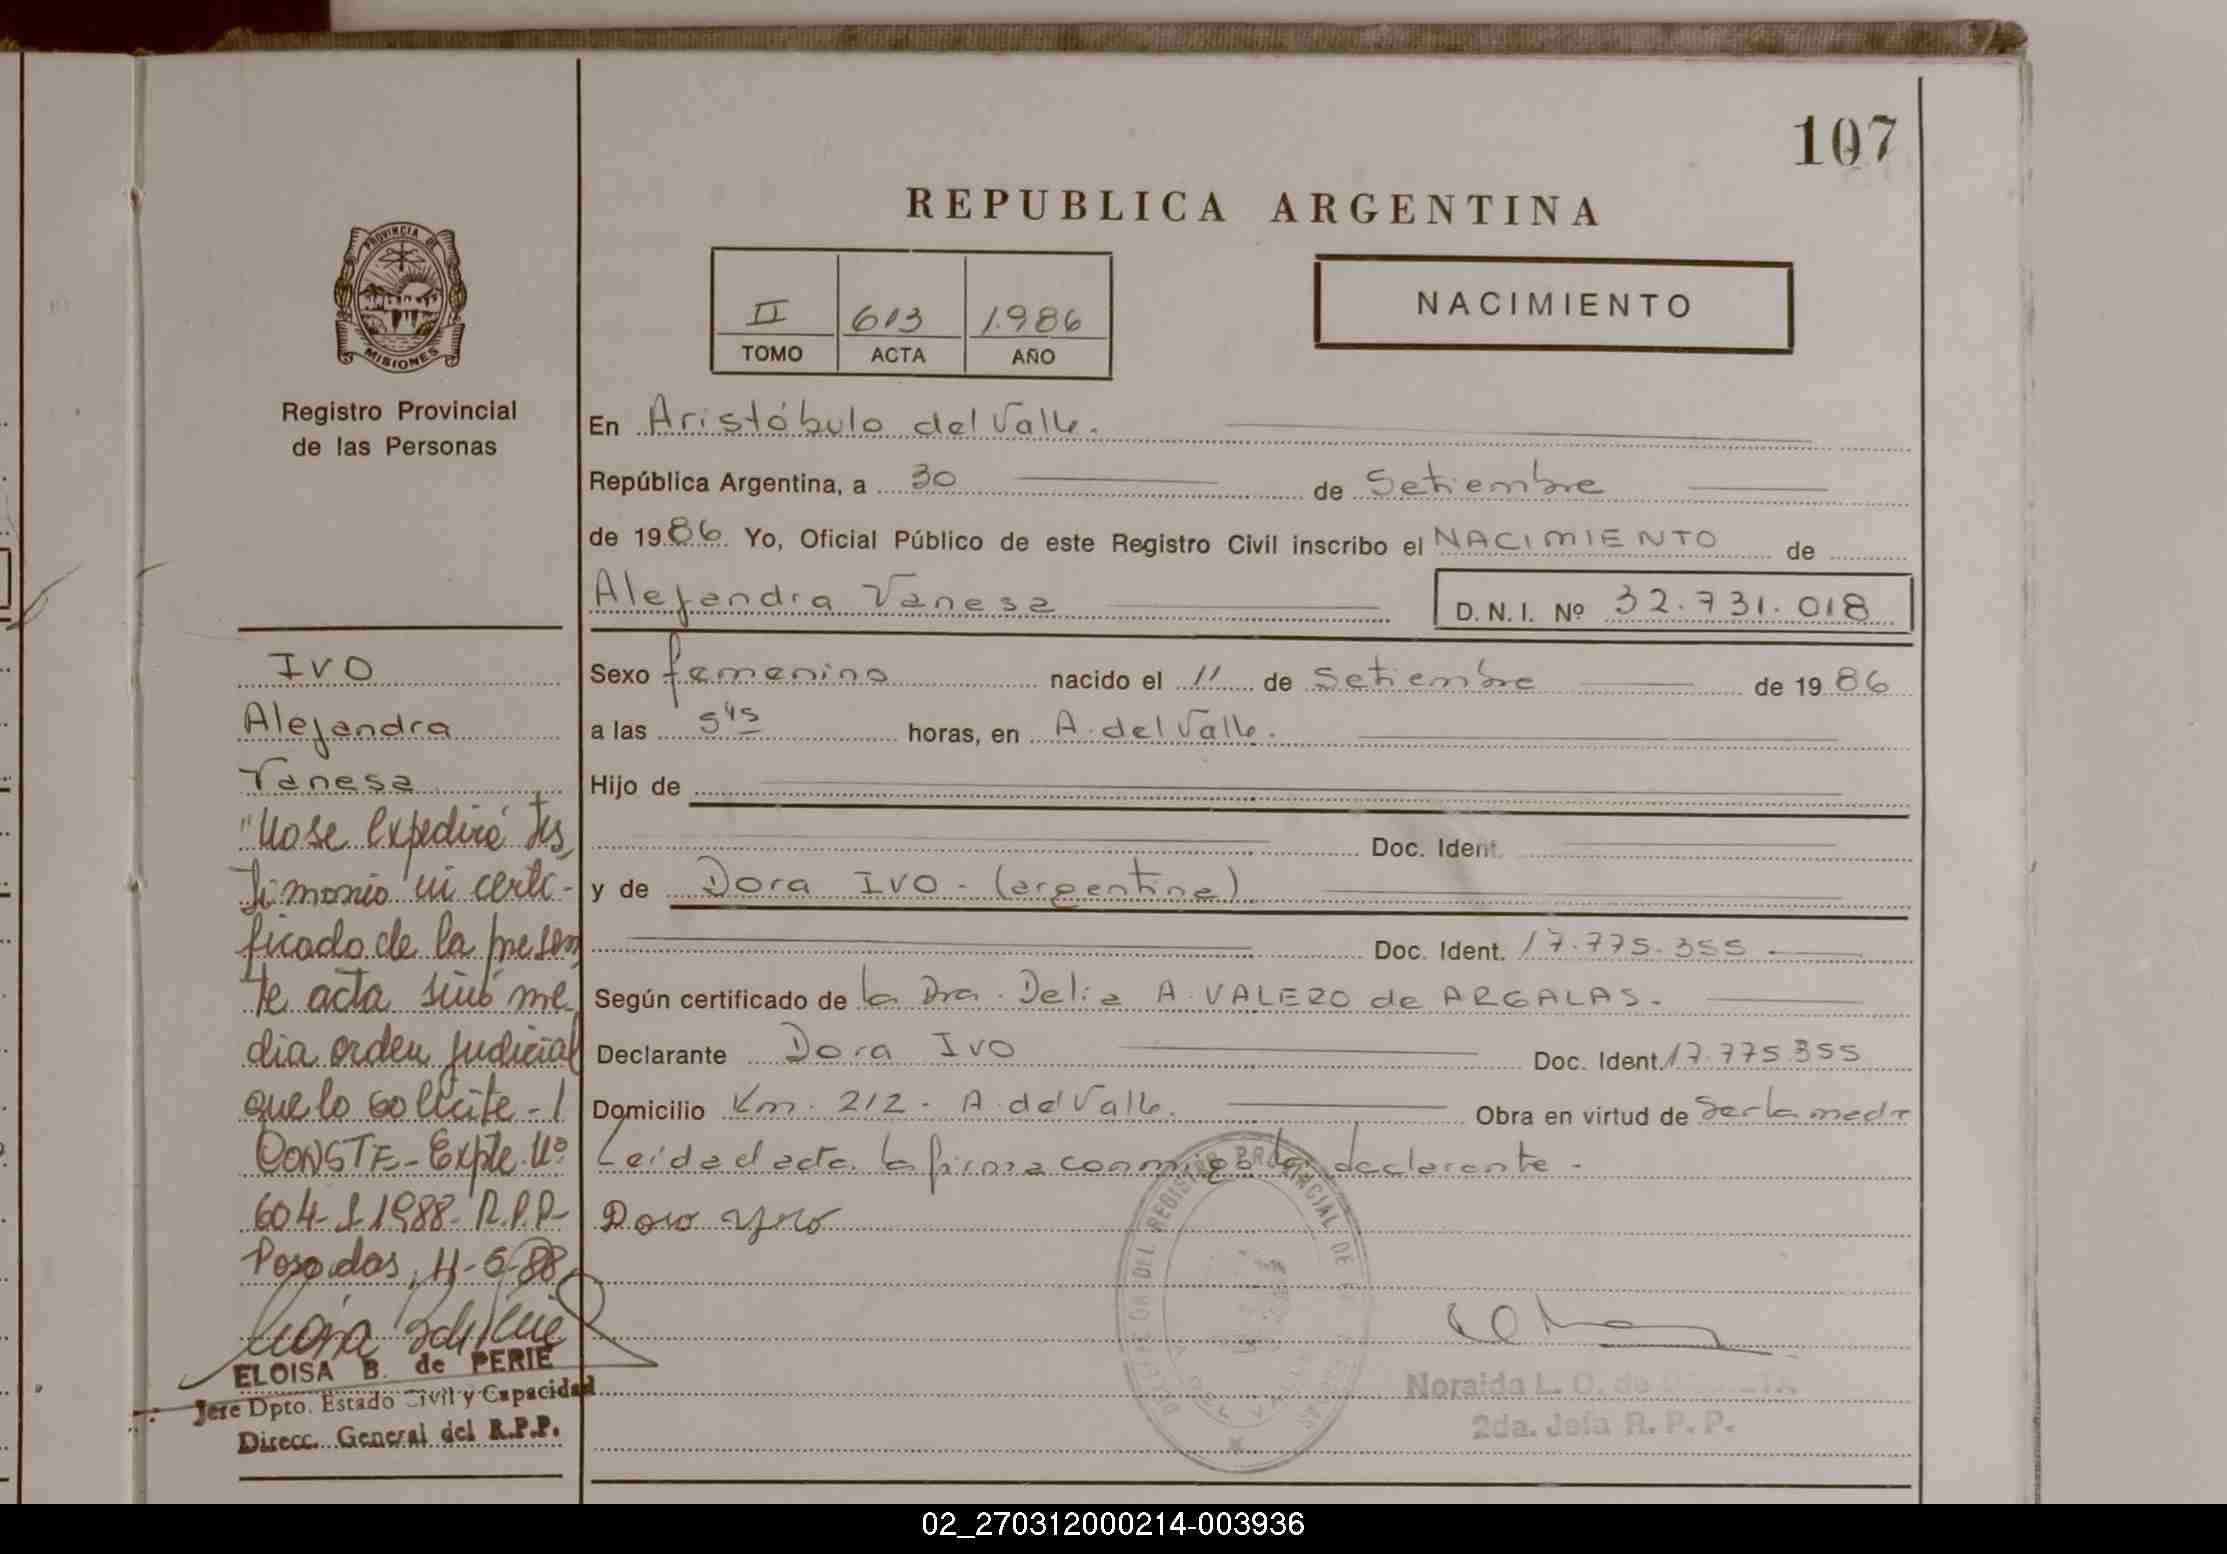 107
REPUBLICA ARGENTINA
PROVINCIA DE
MISIONES
Registro Provincial
de las Personas
II 613 1.986
TOMO ACTA AÑO
NACIMIENTO
En Aristóbulo del Valle.
República Argentina, a 30 de Setiembre
de 1986 Yo, Oficial Público de este Registro Civil inscribo el NACIMIENTO de
Alejandra Vanesa D. N. I. Nº 32.731.018
Sexo femenino nacido el 11 de Setiembre de 1986
a las 5 45 horas, en A. del Valle.
Hijo de
Doc. Ident.
y de Dora IVO - (argentina)
Doc. Ident. 17.775.355
Según certificado de la Dra. Delia A. VALERO de ARGALAS.
Declarante Dora IVO Doc. Ident. 17.775.355
Domicilio Km. 212 - A. del Valle. Obra en virtud de Ser la madre
Leída el acta la firma conmigo la declarante.
Dora Yvo
Noraida L. O. de
2da. Jefa R. P. P.
IVO
Alejandra
Vanesa
"No se expedirá tes
timonio ni certi-
ficado de la presen
te acta sinó me
dia orden judicial
que lo solicite -
CONSTE - Expte. Nº
604- I 1988- R.P.P-
Posadas, 11-5-88
ELOISA B. de PERIE
Jefe Dpto. Estado Civil y Capacidad
Direcc. General del R.P.P.
02_270312000214-003936